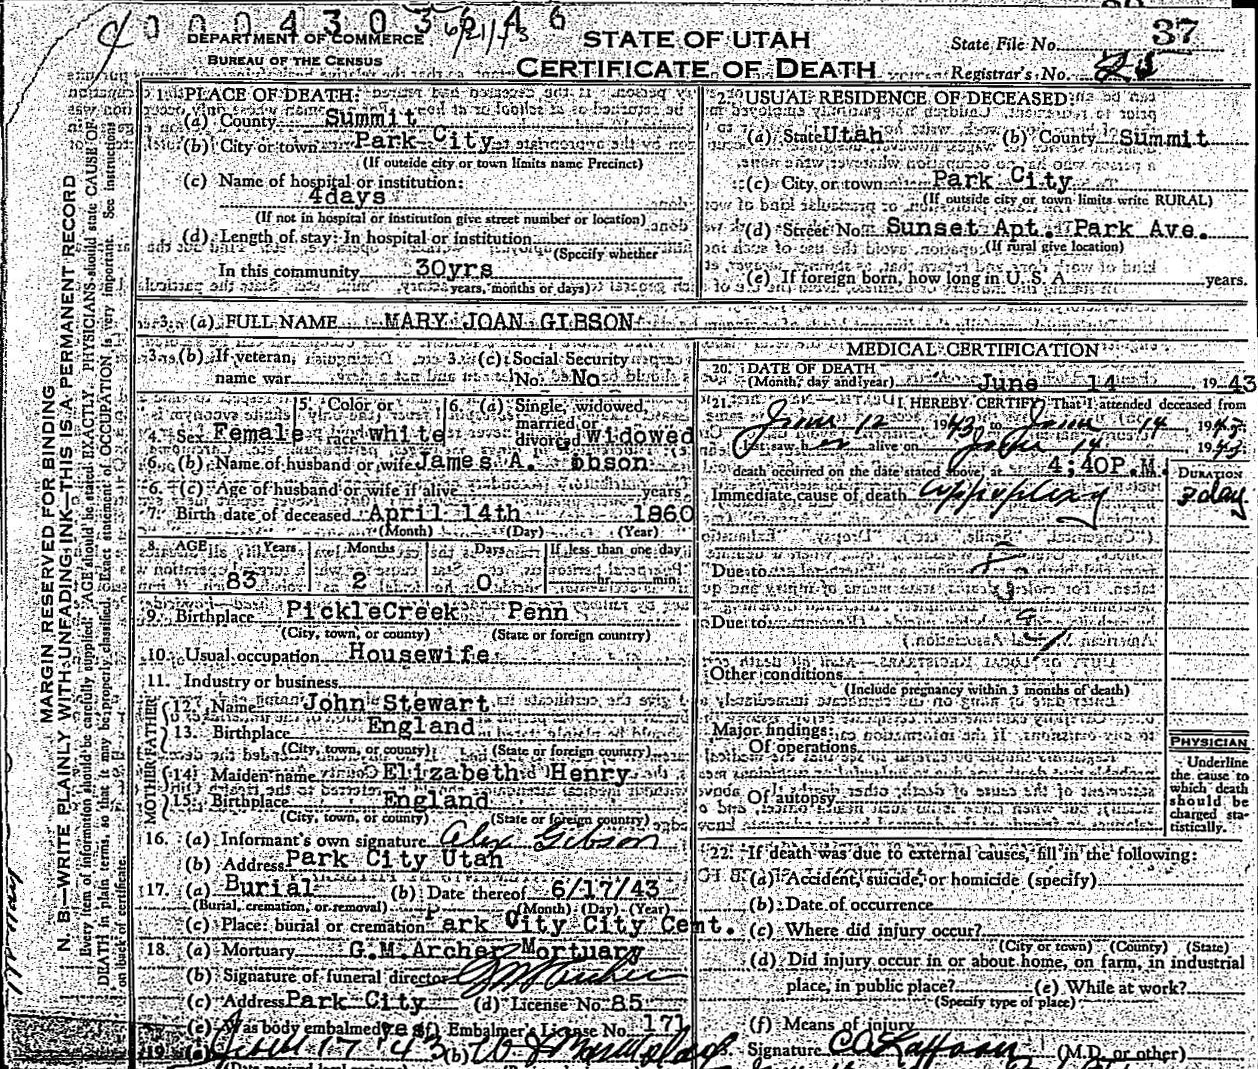 0 0 0 4 3 0 3 6 4 6
6/21/43
DEPARTMENT OF COMMERCE
BUREAU OF THE CENSUS
STATE OF UTAH
CERTIFICATE OF DEATH
State File No. 37
Registrar's No.
MARGIN RESERVED FOR BINDING
N. B.—WRITE PLAINLY WITH UNFADING INK—THIS IS A PERMANENT RECORD
Every item of information should be carefully supplied. AGE should be stated EXACTLY. PHYSICIANS should state CAUSE OF
DEATH in plain terms, so that it may be properly classified. Exact statement of OCCUPATION is very important. See instructions
on back of certificate.
1. PLACE OF DEATH:
(a) County Summit
(b) City or town Park City
(If outside city or town limits name Precinct)
(c) Name of hospital or institution:
4days
(If not in hospital or institution give street number or location)
(d) Length of stay: In hospital or institution
(Specify whether
In this community 30yrs
years, months or days)
2. USUAL RESIDENCE OF DECEASED:
(a) State Utah (b) County Summit
(c) City or town Park City
(If outside city or town limits write RURAL)
(d) Street No. Sunset Apt. Park Ave.
(If rural give location)
(e) If foreign born, how long in U. S. A. years.
3. (a) FULL NAME MARY JOAN GIBSON
3. (b) If veteran, name war
3. (c) Social Security No. No
4. Sex Female
5. Color or race white
6. (a) Single, widowed, married or divorced widowed
6. (b) Name of husband or wife James A. ibson
6. (c) Age of husband or wife if alive years
7. Birth date of deceased April 14th 1860
(Month) (Day) (Year)
8. AGE Years Months Days If less than one day
83 2 0 hr. min.
9. Birthplace PickleCreek Penn
(City, town, or county) (State or foreign country)
10. Usual occupation Housewife
11. Industry or business
FATHER
12. Name John Stewart
13. Birthplace England
(City, town, or county) (State or foreign country)
MOTHER
14. Maiden name Elizabeth Henry
15. Birthplace England
(City, town, or county) (State or foreign country)
16. (a) Informant's own signature Alex Gibson
(b) Address Park City Utah
17. (a) Burial (b) Date thereof 6/17/43
(Burial, cremation, or removal) (Month) (Day) (Year)
(c) Place: burial or cremation Park City City Cemt.
18. (a) Mortuary G.M. Archer Mortuary
(b) Signature of funeral director GM Archer
(c) Address Park City (d) License No. 85
(e) Was body embalmed yes (f) Embalmer's License No. 171
19. (a) June 17 '43 (b)
MEDICAL CERTIFICATION
20. DATE OF DEATH
(Month, day and year) June 14 1943
21. I HEREBY CERTIFY That I attended deceased from
June 12 1943 to June 14 1943
I saw her alive on June 14 1943
death occurred on the date stated above, at 4:40P.M.
DURATION
Immediate cause of death Appoplexy 3 day
Due to
Due to
Other conditions
(Include pregnancy within 3 months of death)
Major findings:
Of operations
Of autopsy
PHYSICIAN
Underline
the cause to
which death
should be
charged sta-
tistically.
22. If death was due to external causes, fill in the following:
(a) Accident, suicide, or homicide (specify)
(b) Date of occurrence
(c) Where did injury occur?
(City or town) (County) (State)
(d) Did injury occur in or about home, on farm, in industrial
place, in public place? (e) While at work?
(Specify type of place)
(f) Means of injury
Signature (M.D. or other)